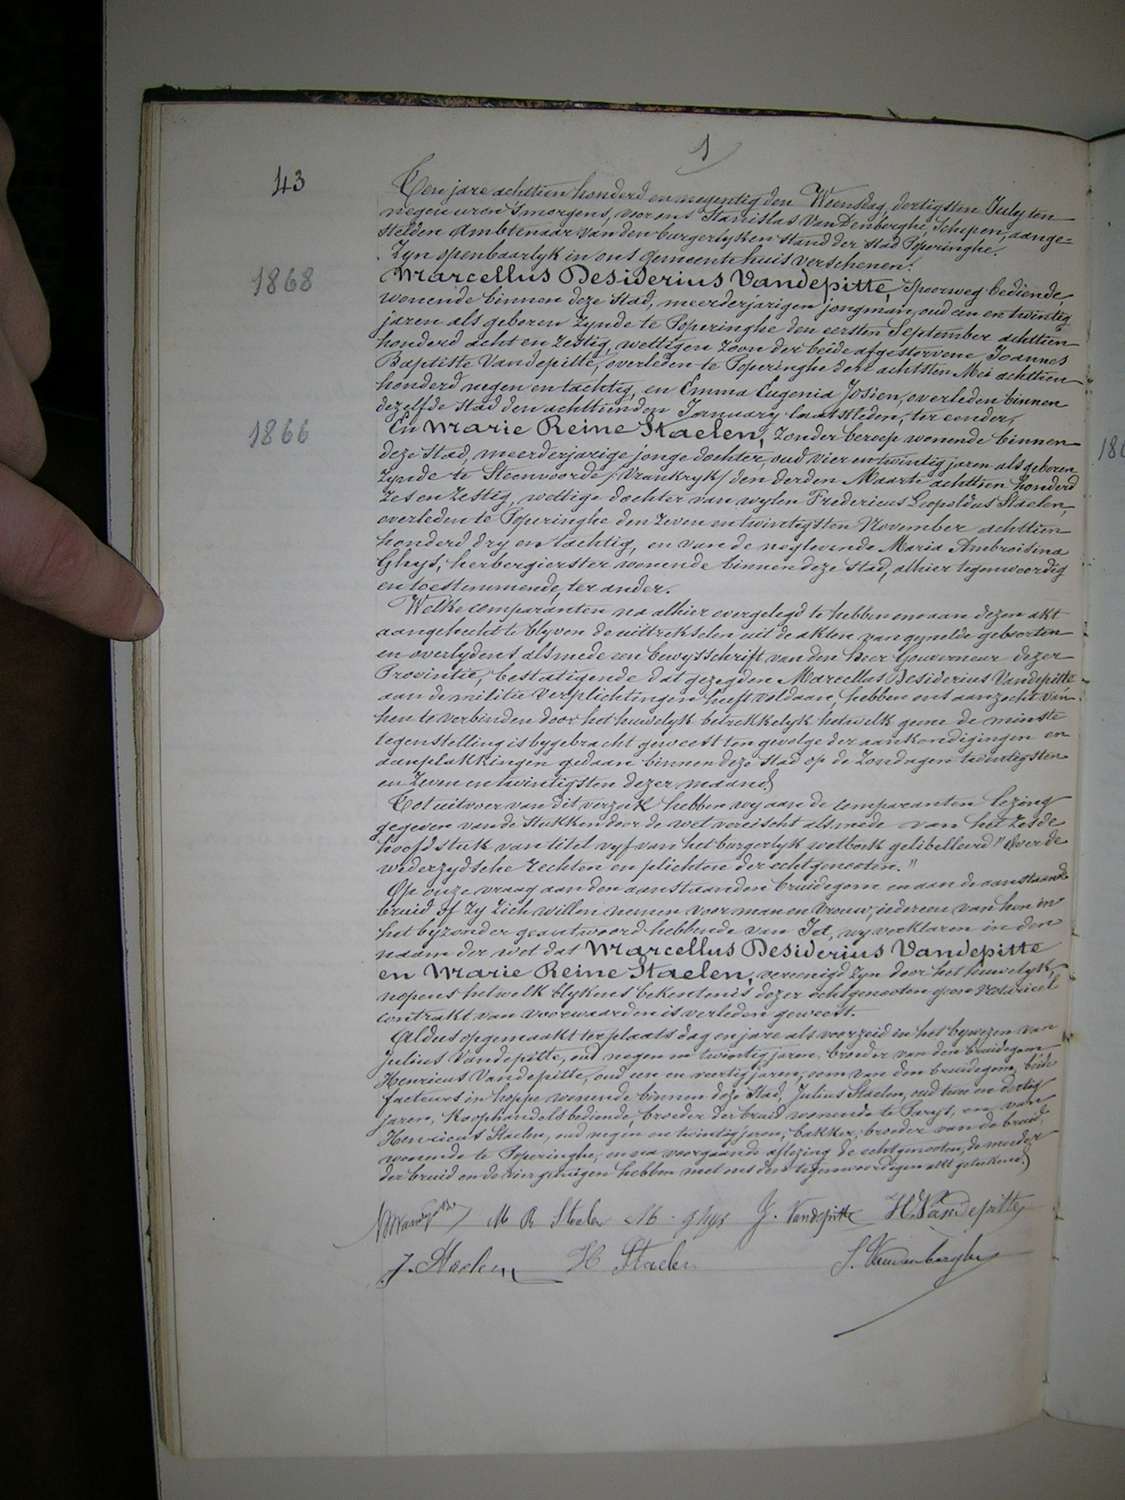 1
43
Ten jare achttien honderd en negentig den Woensdag, dertigsten July ten
negen uren 's morgens, voor ons Stanislas Van Denberghe, Schepen, aange=
stelden Ambtenaar van den burgerlyken stand der stad Poperinghe.
Zyn openbaarlyk in ons gemeentehuis verschenen:
1868
Marcellus Desiderius Vandepitte, Spoorweg bediende,
wonende binnen deze stad, meerderjarigen jongman, oud een en twintig
jaren als geboren zynde te Poperinghe den eersten September achttien
honderd acht en zestig, wettigen zoon der beide afgestorvene Joannes
Baptiste Vandepitte, overleden te Poperinghe den achtsten Mei achttien
honderd negen en tachtig, en Emma Eugenia Josien, overleden binnen
dezelfde stad den achttienden January laatstleden, ter eender,
1866
En Marie Reine Staelen, zonder beroep wonende binnen
deze stad, meerderjarige jonge dochter, oud vier en twintig jaren als geboren
zynde te Steenvoorde / Vrankryk / den derden Maarte achttien honderd
zes en zestig, wettige dochter van wylen Fredericus Leopoldus Staelen,
overleden te Poperinghe den zeven en twintigsten November achttien
honderd dry en tachtig, en van de noglevende Maria Ambroisina
Ghys, herbergierster wonende binnen deze stad, alhier tegenwoordig
en toestemmende, ter ander.
Welke comparanten na alhier overgelegd te hebben om aan dezen akt
aangehecht te blyven de uittrekselen uit de akten van gemelde geboorten
en overlydens alsmede een bewysschrift van den heer Gouverneur dezer
Provintie, bestatigende dat gezegden Marcellus Desiderius Vandepitte
aan de militie verplichtingen heeft voldaan, hebben ons aanzocht van
hen te verbinden door het huwelyk betrekkelyk hetwelk geene de minste
tegenstelling is bygebracht geweest ten gevolge der aankondigingen en
aanplakkingen gedaan binnen deze stad op de Zondagen twintigsten
en zeven en twintigsten dezer maand
Tot uitvoer van dit verzoek hebben wy aan de comparanten lezing
gegeven van de stukken door de wet vereischt alsmede van het zesde
hoofdstuk van titel vyf van het burgerlyk wetboek gelibelleerd "Over de
wederzydsche rechten en plichten der echtgenooten."
Op onze vraag aan den aanstaanden bruidegom en aan de aanstaande
bruid of zy zich willen nemen voor man en vrouw, iedereen van hun in
het byzonder geantwoord hebbende van Ja, wy verklaren in den
naam der wet dat Marcellus Desiderius Vandepitte
en Marie Reine Staelen, vereenigd zyn door het huwelyk,
nopens hetwelk blykens bekentenis dezer echtgenooten geen notarieel
contrakt van voorwaarden is verleden geweest.
Aldus opgemaakt ter plaats dag en jare als voorzeid in het bywezen van
Julius Vandepitte, oud negen en twintig jaren, broeder van den bruidegom
Henricus Vandepitte, oud een en veertig jaren, oom van den bruidegom, beide
facteurs in hoppe wonende binnen deze stad, Julius Staelen, oud twee en dertig
jaren, Koophandelsbediende, broeder der bruid wonende te Parys, en van
Henricus Staelen, oud negen en twintig jaren, bakker, broeder van de bruid,
wonende te Poperinghe, en na voorgaande aflezing de echtgenooten, de moeder
der bruid en de vier getuigen hebben met ons den tegenwoordigen akt geteekend.
M R Staelen M. ghys J. Vandepitte H. Vandepitte
J. Staelen H Staelen S. Vandenberghe